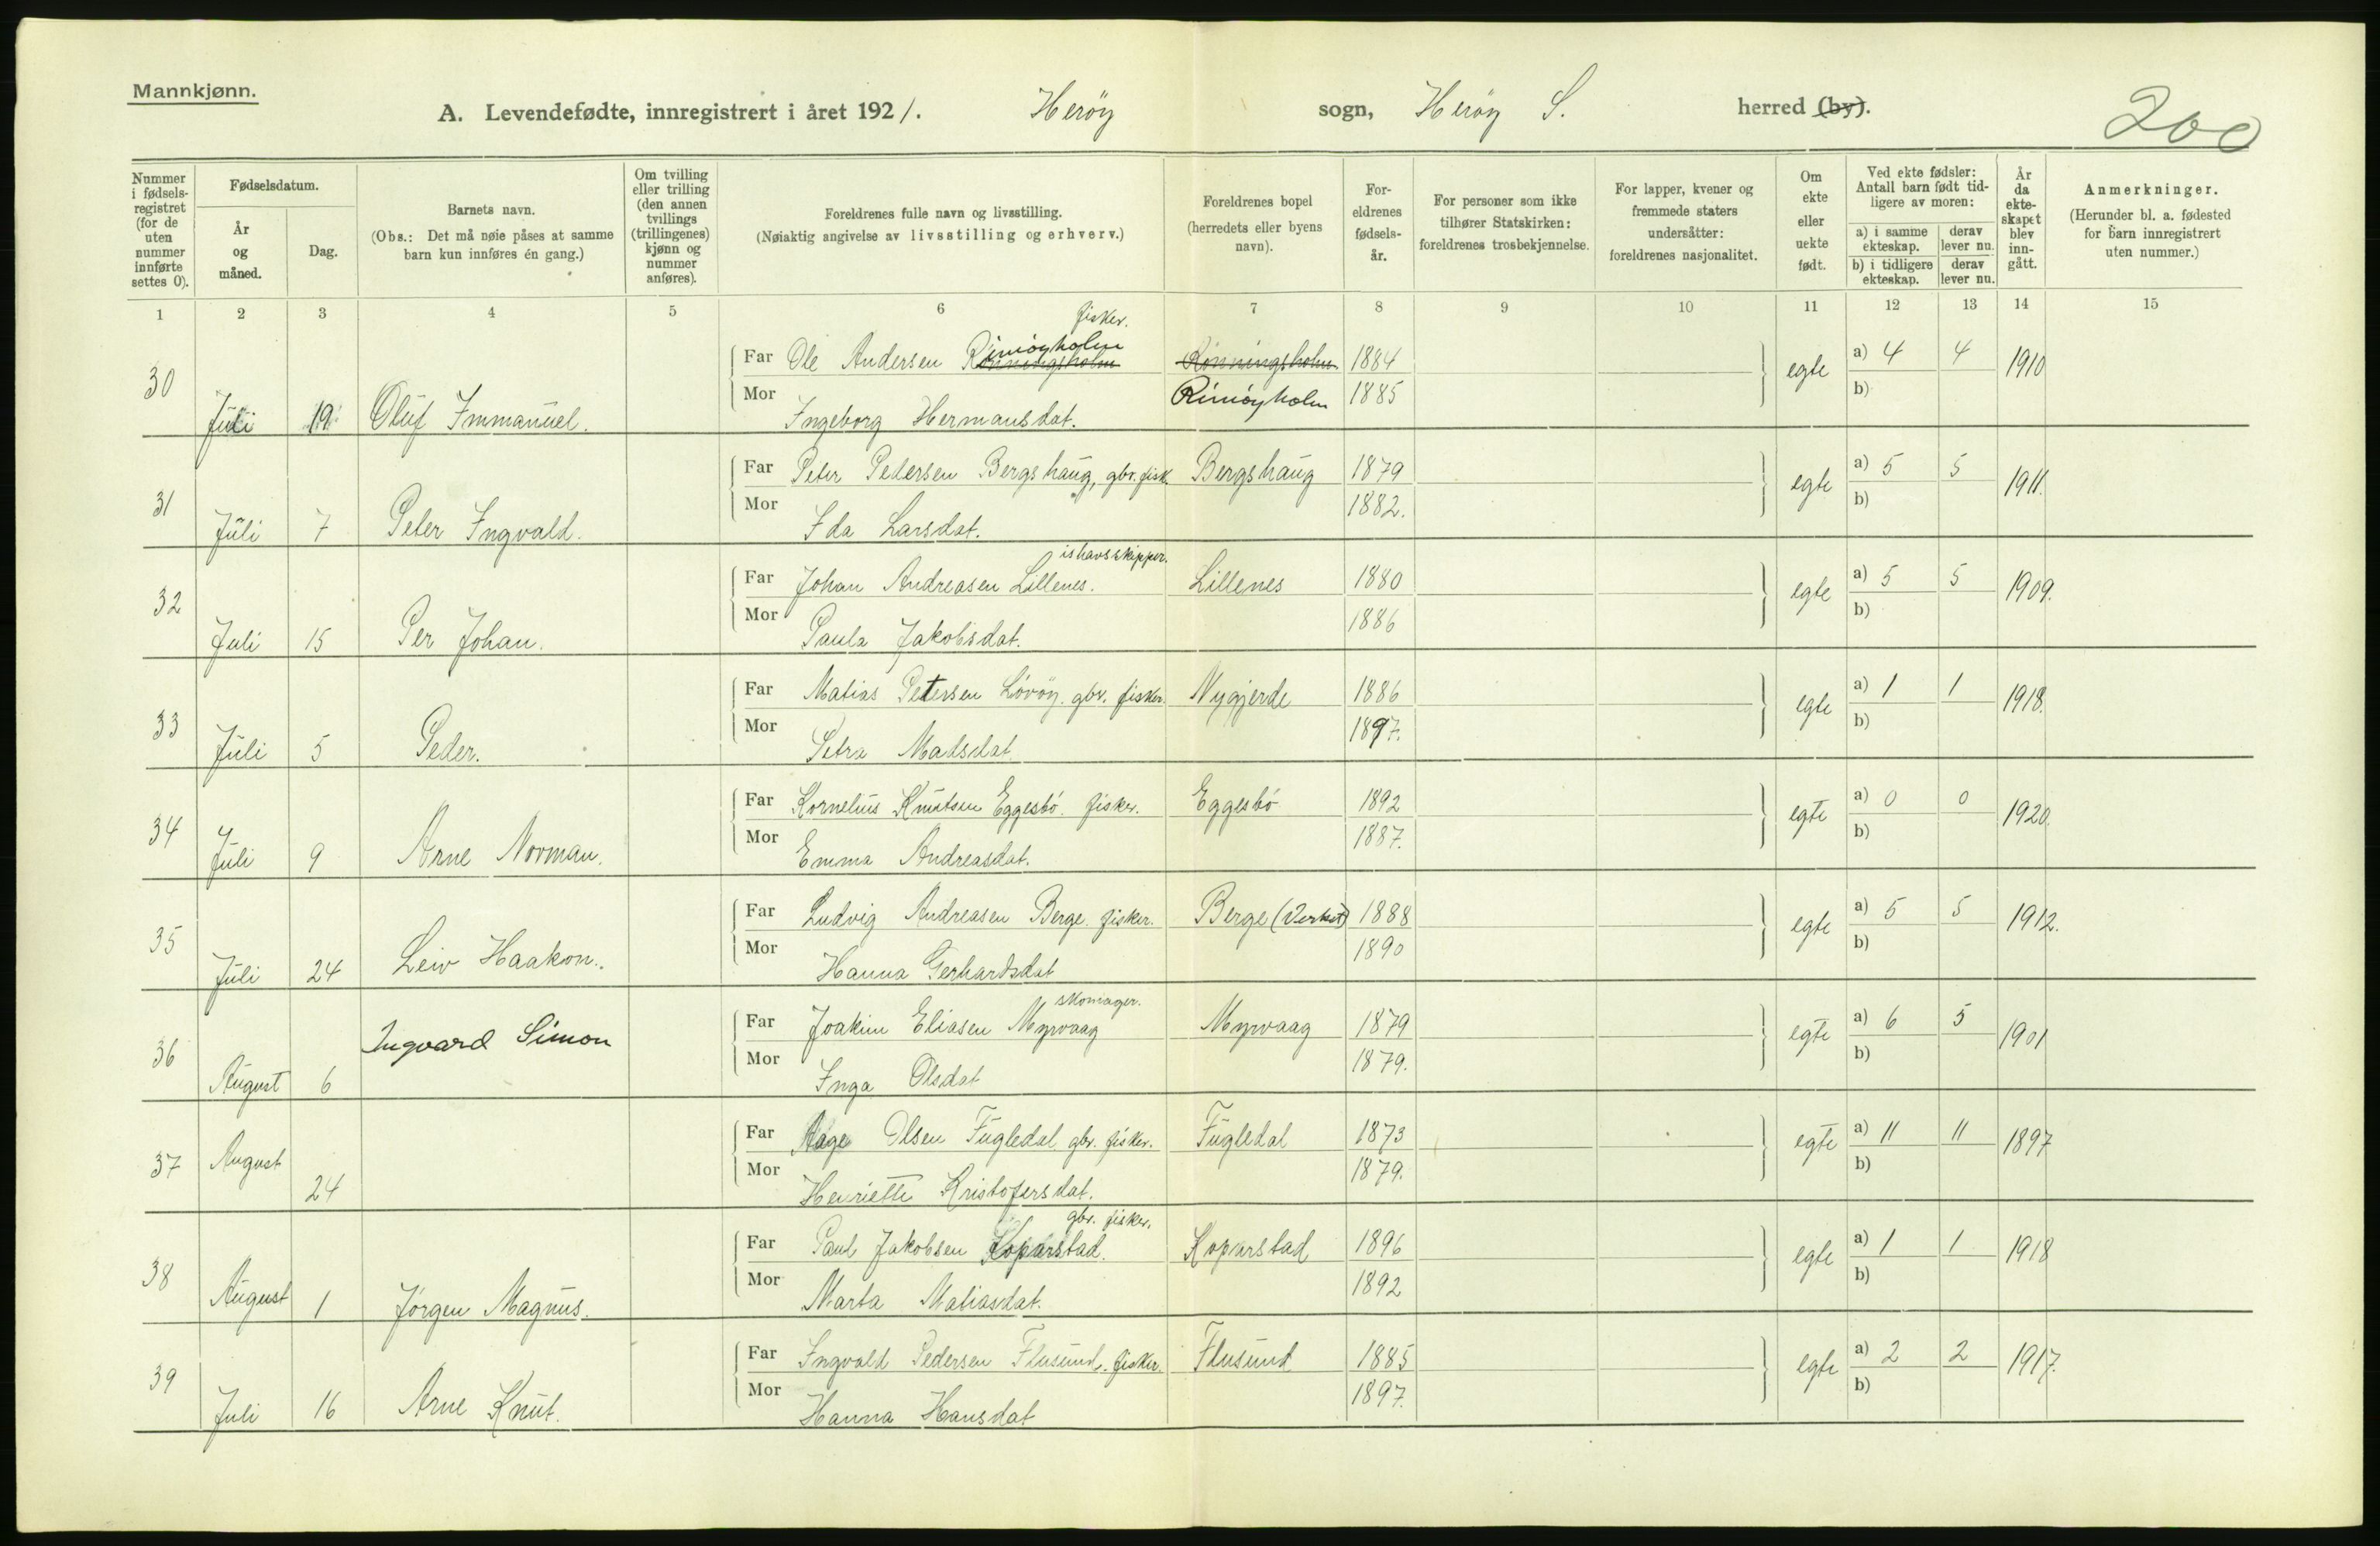 Mannkjønn.
A. Levendefødte, innregistrert i året 1921. Herøy sogn, Herøy S. herred (by).
200
Nummer i fødsels-registret (for de uten nummer innførte settes 0).
Fødselsdatum.
År og måned.
Dag.
Barnets navn.
(Obs.: Det må nøie påses at samme barn kun innføres én gang.)
Om tvilling eller trilling (den annen tvillings (trillingenes) kjønn og nummer anføres).
Foreldrenes fulle navn og livsstilling.
(Nøiaktig angivelse av livsstilling og erhverv.)
Foreldrenes bopel (herredets eller byens navn).
For-eldrenes fødsels-år.
For personer som ikke tilhører Statskirken: foreldrenes trosbekjennelse.
For lapper, kvener og fremmede staters undersåtter: foreldrenes nasjonalitet.
Om ekte eller uekte født.
Ved ekte fødsler: Antall barn født tid-ligere av moren:
a) i samme ekteskap. derav lever nu.
b) i tidligere ekteskap. derav lever nu.
År da ekte-skapet blev inn-gått.
Anmerkninger.
(Herunder bl. a. fødested for barn innregistrert uten nummer.)
1 2 3 4 5 6 7 8 9 10 11 12 13 14 15
fisker.
Rimøyholm
30 Juli 19 Oluf Immanuel. Far Ole Andersen Rønningsholm Rønningsholm 1884 egte a) 4 4 1910
Mor Ingeborg Hermansdat. Rimøyholm 1885 b)
31 Juli 7 Peter Ingvald. Far Peter Pedersen Bergshaug, gbr. fisk. Bergshaug 1879 egte a) 5 5 1911.
Mor Ida Larsdat. 1882. b)
ishavsskipper.
32 Juli 15 Per Johan. Far Johan Andreasen Lillenes. Lillenes 1880 egte a) 5 5 1909.
Mor Paula Jakobsdat. 1886 b)
33 Juli 5 Peder. Far Matias Petersen Løvøy. gbr. fisker. Nygjerde 1886 egte a) 1 1 1918.
Mor Petra Madsdat 1897. b)
34 Juli 9 Arne Norman. Far Kornelius Knutsen Eggesbø. fisker. Eggesbø 1892 egte a) 0 0 1920.
Mor Emma Andreasdat. 1887. b)
35 Juli 24 Leiv Haakon. Far Ludvig Andreasen Berge. fisker. Berge (Verket) 1888 egte a) 5 5 1912.
Mor Hanna Gerhardsdat 1890 b)
skomager.
36 August 6 Ingvard Simon Far Joakim Eliasen Myrvaag Myrvaag 1879 egte a) 6 5 1901
Mor Inga Olsdat 1879. b)
37 August 24 Far Aage Olsen Fugledal gbr. fisker. Fugledal 1873 egte a) 11 11 1897
Mor Henriette Kristofersdat. 1879. b)
gbr. fisker.
38 August 1 Jørgen Magnus. Far Paul Jakobsen Koparstad. Koparstad 1896 egte a) 1 1 1918
Mor Marta Matiasdat. 1892 b)
39 Juli 16 Arne Knut. Far Ingvald Pedersen Flusund. fisker. Flusund 1885 egte a) 2 2 1917.
Mor Hanna Hansdat 1897. b)